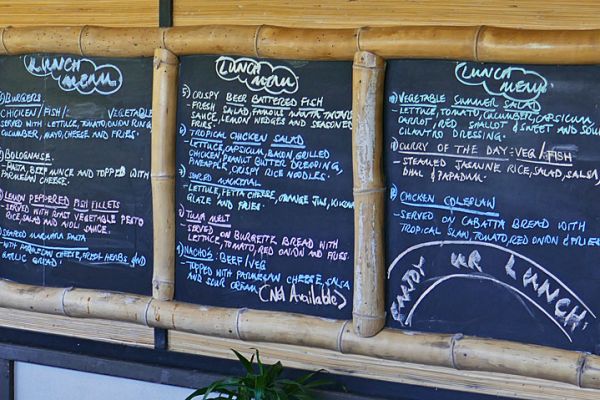 LUNCH MENU
BURGERS
CHICKEN/FISH/- VEGETABLE
SERVED WITH LETTUCE, TOMATO, ONION RING
CUCUMBER, MAYO, CHEESE AND FRIES.
BOLOGNAISE.
-PASTA, BEEF MINCE AND TOPPED WITH
PARMESAN CHEESE.
LEMON PEPPERED FISH FILLETS
- SERVED WITH ROAST VEGETABLE PESTO
RICE, SALAD AND AIOLI SAUCE.
SEAFOOD MARINARA PASTA
-WITH PARMESAN CHEESE, FRESH HERBS, AND
GARLIC BREAD.
LUNCH MENU
5) CRISPY BEER BATTERED FISH
- FRESH SALAD, FAMOUS TARTAR
SAUCE, LEMON WEDGES AND SEASONED
FRIES.
TROPICAL CHICKEN SALAD
- LETTUCE, CAPSICUM, BACON, GRILLED
CHICKEN, PEANUT BUTTER DRESSING,
PINEAPPLE, CRISPY RICE NOODLES
SEARED MACKEREAL
- LETTUCE, FETTA CHEESE, ORANGE JUS,
GLAZE AND FRIES.
TUNA MELT
- SERVED ON BURGETTE BREAD WITH
LETTUCE, TOMATO, RED ONION AND FRIES
NACHOS: BEEF/VEG
- TOPPED WITH PARMESAN CHEESE, SALSA
AND SOUR CREAM. (Not Available)
LUNCH MENU
VEGETABLE SUMMER SALAD
LETTUCE, TOMATO, CUCUMBER, CAPSICUM
CARROT RED SHALLOT & SWEET AND SOUR
CILANTRO DRESSING.
CURRY OF THE DAY: VEG/FISH
- STEAMED JASMINE RICE, SALAD, SALSA,
DHAL & PAPADUM.
CHICKEN COLESLAW
- SERVED ON CABATTA BREAD WITH
TROPICAL SLAW, TOMATO, RED ONION & FRIES
ENJOY UR LUNCH.